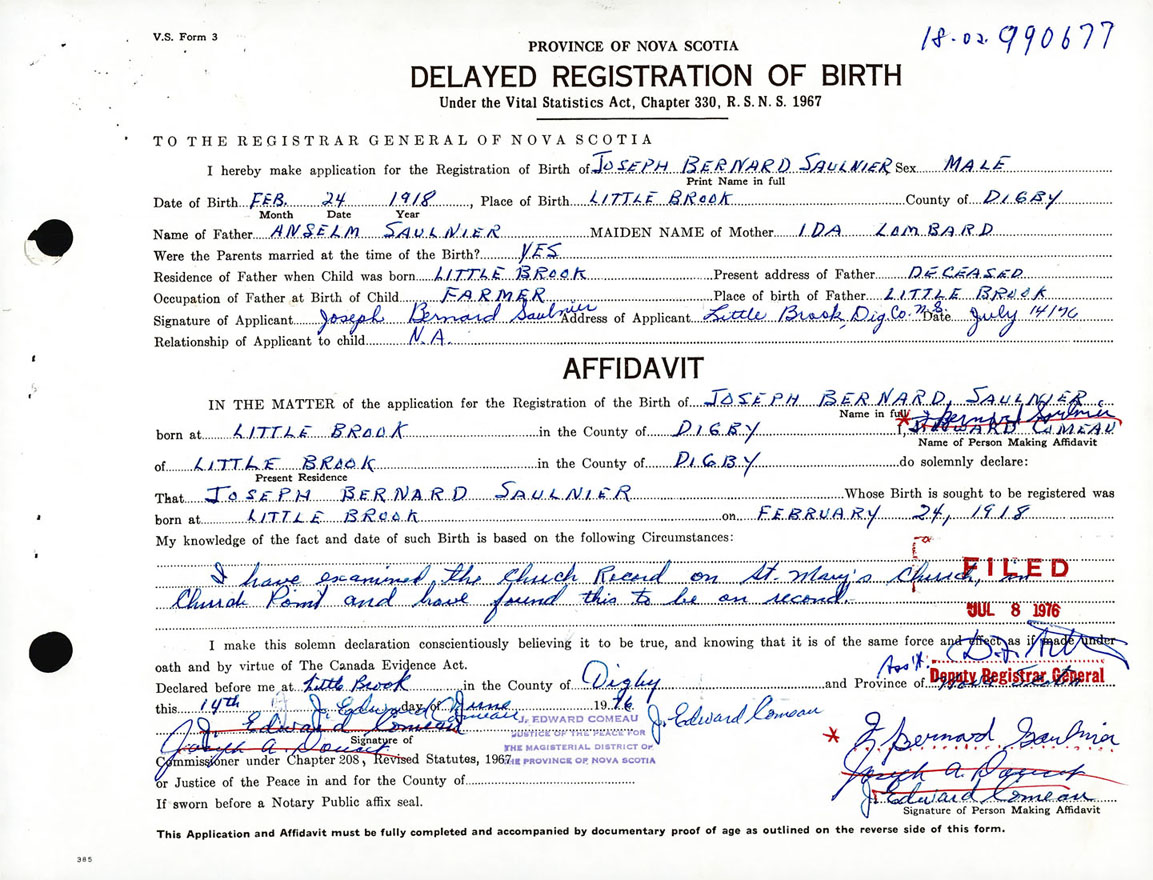 V.S. Form 3
18-02-990677
PROVINCE OF NOVA SCOTIA
DELAYED REGISTRATION OF BIRTH
Under the Vital Statistics Act, Chapter 330, R.S.N.S. 1967
TO THE REGISTRAR GENERAL OF NOVA SCOTIA
I hereby make application for the Registration of Birth of JOSEPH BERNARD SAULNIER Sex MALE
Print Name in full
Date of Birth FEB. 24 1918, Place of Birth LITTLE BROOK County of DIGBY
Month Date Year
Name of Father ANSELM SAULNIER MAIDEN NAME of Mother IDA LOMBARD
Were the Parents married at the time of the Birth? YES
Residence of Father when Child was born LITTLE BROOK Present address of Father DECEASED
Occupation of Father at Birth of Child FARMER Place of birth of Father LITTLE BROOK
Signature of Applicant Joseph Bernard Saulnier Address of Applicant Little Brook, Dig Co. N.S. Date July 14/76
Relationship of Applicant to child N.A.
AFFIDAVIT
IN THE MATTER of the application for the Registration of the Birth of JOSEPH BERNARD, SAULNIER
Name in full J Bernard Saulnier
born at LITTLE BROOK in the County of DIGBY I, EDWARD COMEAU
Name of Person Making Affidavit
of LITTLE BROOK in the County of DIGBY do solemnly declare:
Present Residence
That JOSEPH BERNARD SAULNIER Whose Birth is sought to be registered was
born at LITTLE BROOK on FEBRUARY 24, 1918
My knowledge of the fact and date of such Birth is based on the following Circumstances:
I have examined the Church Record on St. Mary's Church, on
FILED
Church Point and have found this to be on record.
JUL 8 1976
I make this solemn declaration conscientiously believing it to be true, and knowing that it is of the same force and effect as if made under
oath and by virtue of The Canada Evidence Act.
Ass't. Deputy Registrar General
Declared before me at Little Brook in the County of Digby and Province of Nova Scotia
this 14th day of June 1976
J. Edward Comeau
J. Edward Comeau
J. EDWARD COMEAU
JUSTICE OF THE PEACE FOR
THE MAGISTERIAL DISTRICT OF
THE PROVINCE OF NOVA SCOTIA
J. Edward Comeau
Joseph A. Doucet
Signature of
Commissioner under Chapter 208, Revised Statutes, 1967
or Justice of the Peace in and for the County of
If sworn before a Notary Public affix seal.
J Bernard Saulnier
Joseph A. Doucet
J. Edward Comeau
Signature of Person Making Affidavit
This Application and Affidavit must be fully completed and accompanied by documentary proof of age as outlined on the reverse side of this form.
385